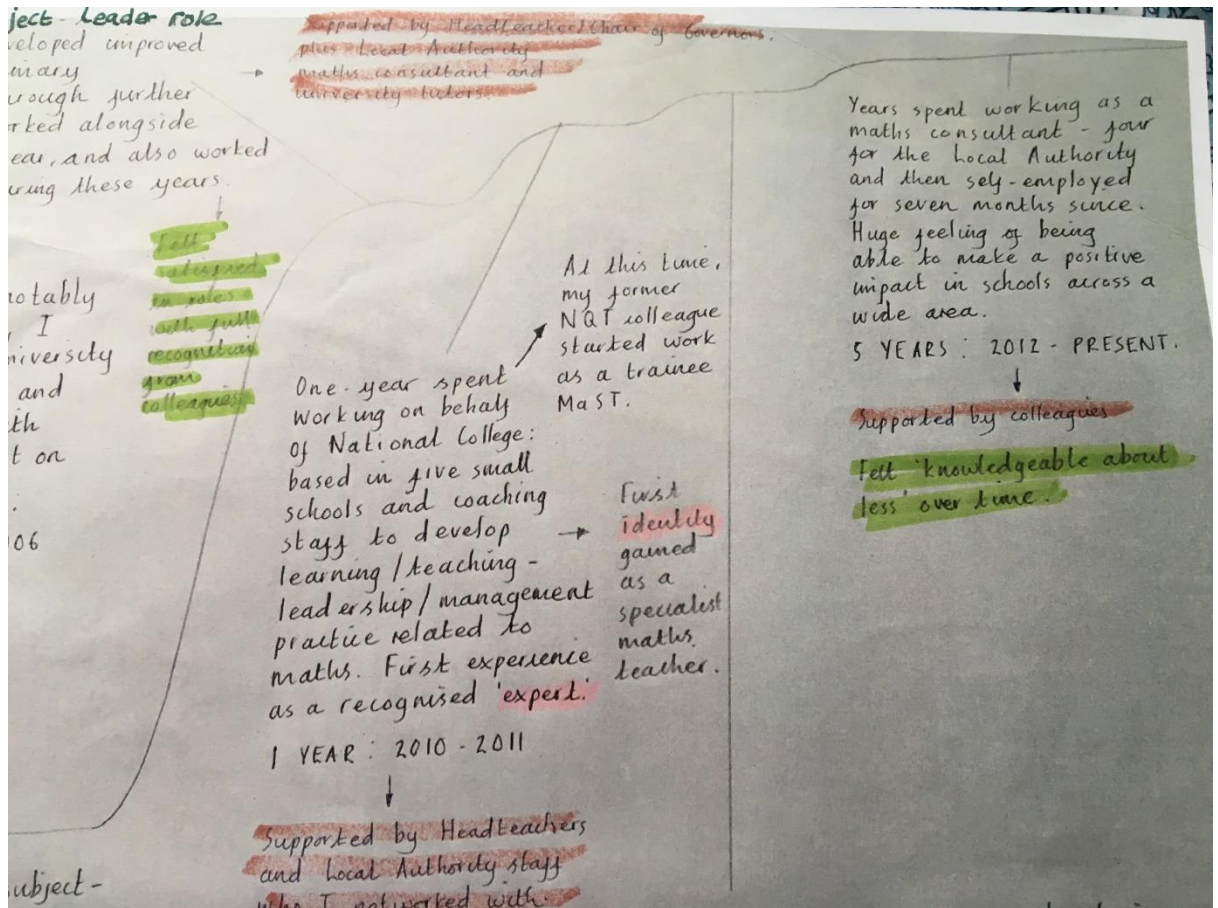 ject - Leader role
veloped improved
mary
rough further
rked alongside
ear, and also worked
uring these years.
Felt
satisfied
in roles
with full
recognition
from
colleagues.
notably
I
niversity
and
th
t on
06
ubject -
Supported by Headteacher/Chair of Governors,
plus Local Authority
maths consultant and
university tutors.
One-year spent
working on behalf
of National College:
based in five small
schools and coaching
staff to develop
learning/teaching -
leadership/management
practice related to
maths. First experience
as a recognised 'expert.'
1 YEAR: 2010 - 2011
Supported by Headteachers
and Local Authority staff
who I networked with.
At this time,
my former
NQT colleague
started work
as a trainee
MaST.
First
identity
gained
as a
specialist
maths
teacher.
Years spent working as a
maths consultant - four
for the Local Authority
and then self-employed
for seven months since.
Huge feeling of being
able to make a positive
impact in schools across a
wide area.
5 YEARS: 2012 - PRESENT.
Supported by colleagues
Felt 'knowledgeable about
less' over time.